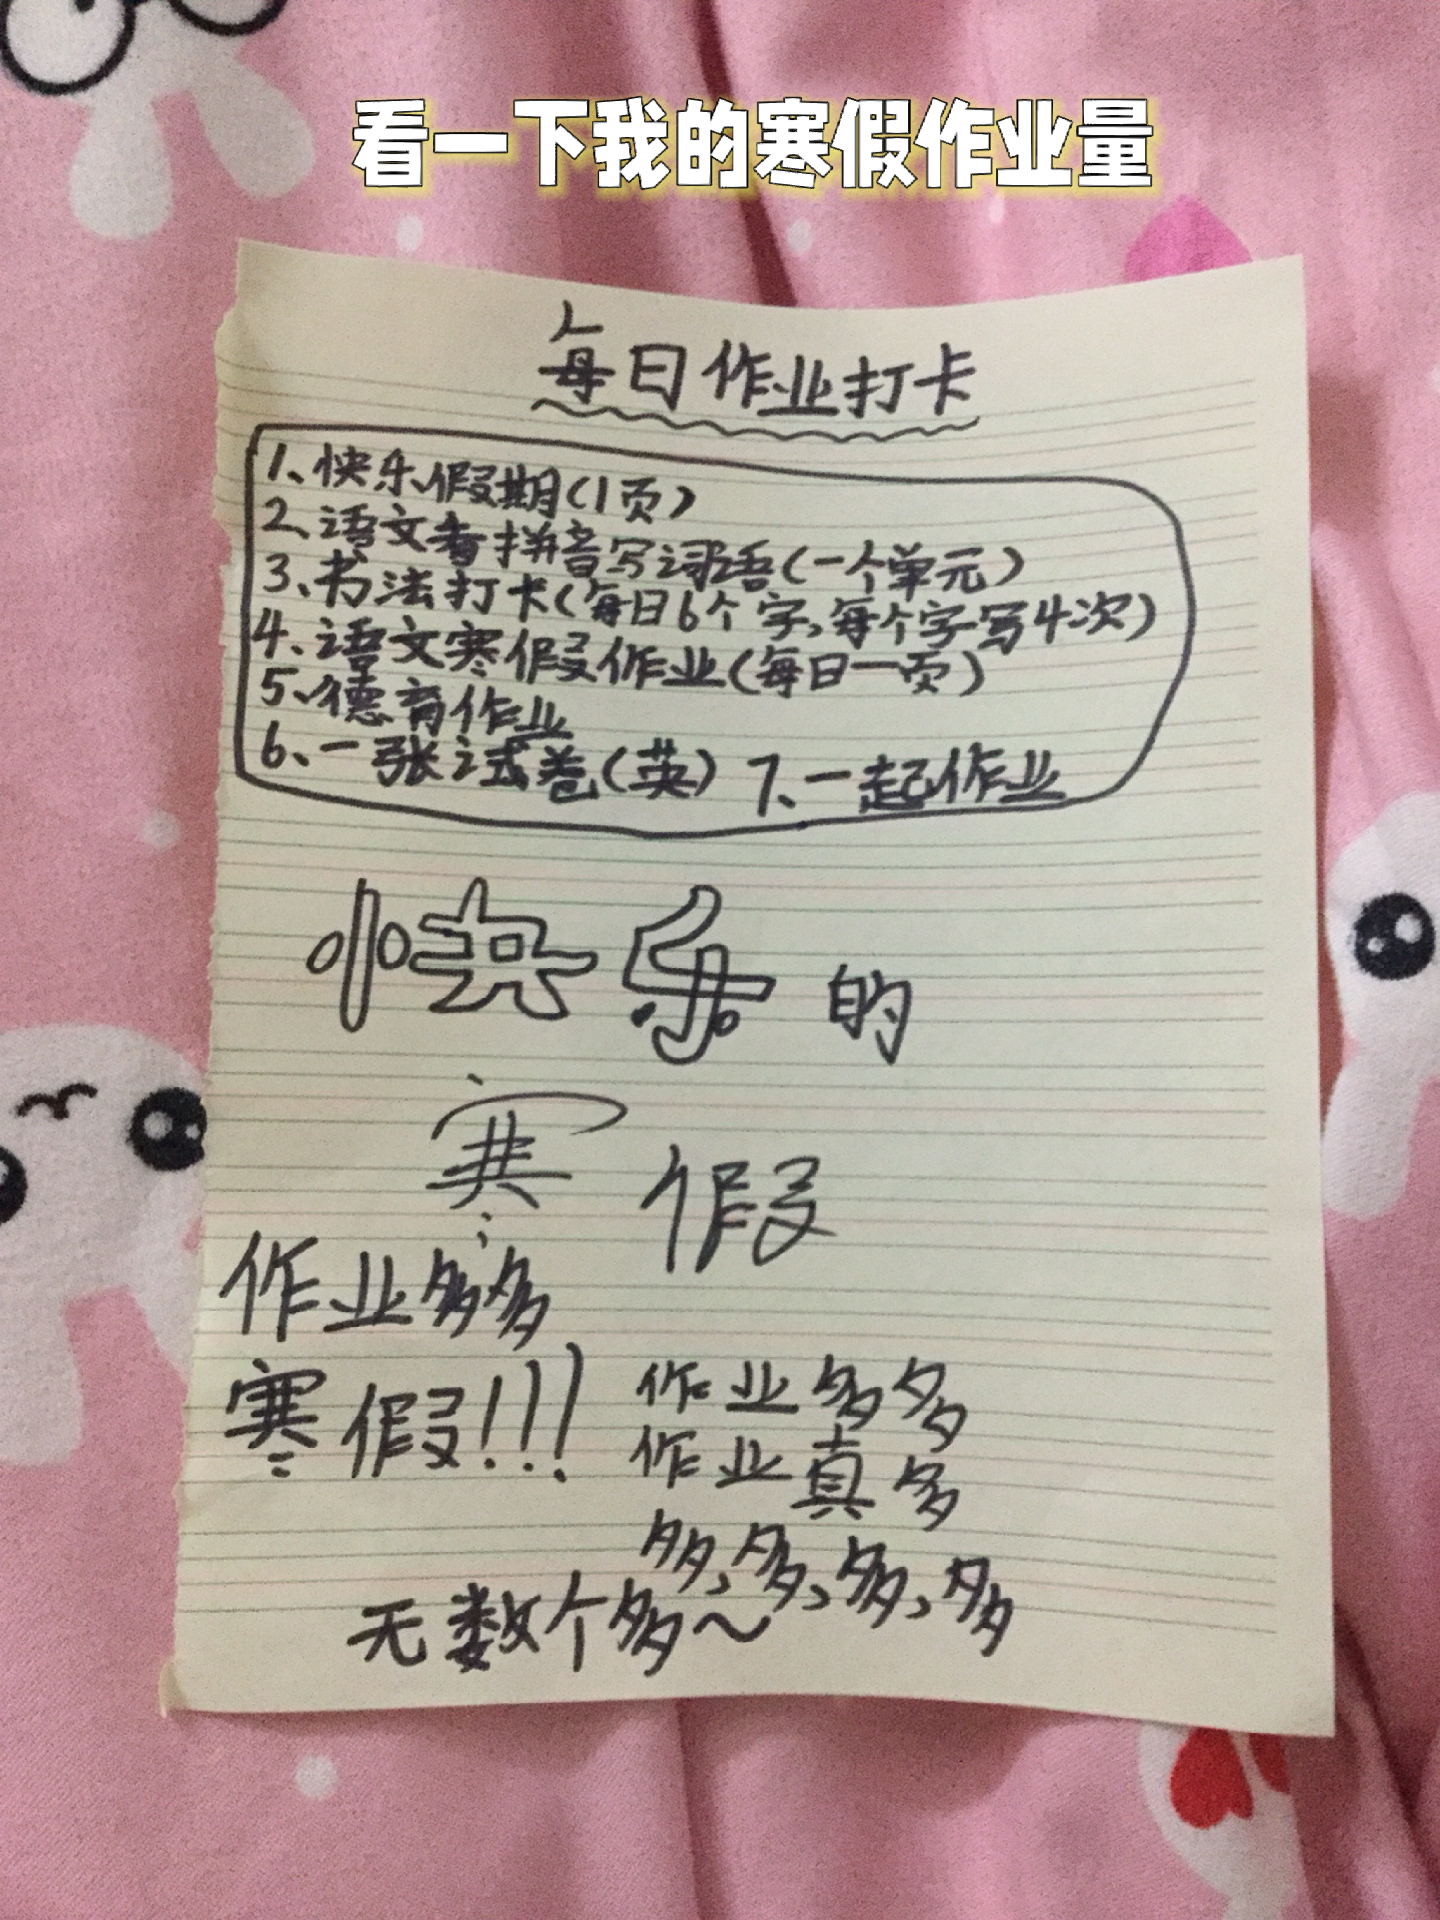 看一下我的寒假作业量
每日作业打卡
1、快乐假期(1页)
2、语文看拼音写词语(一个单元)
3、书法打卡(每日6个字,每个字写4次)
4、语文寒假作业(每日一页)
5、德育作业
6、一张试卷(英) 7、一起作业
快乐的
寒假
作业多多
寒假!!!
作业多多
作业真多
多,多,多,多
无数个多～